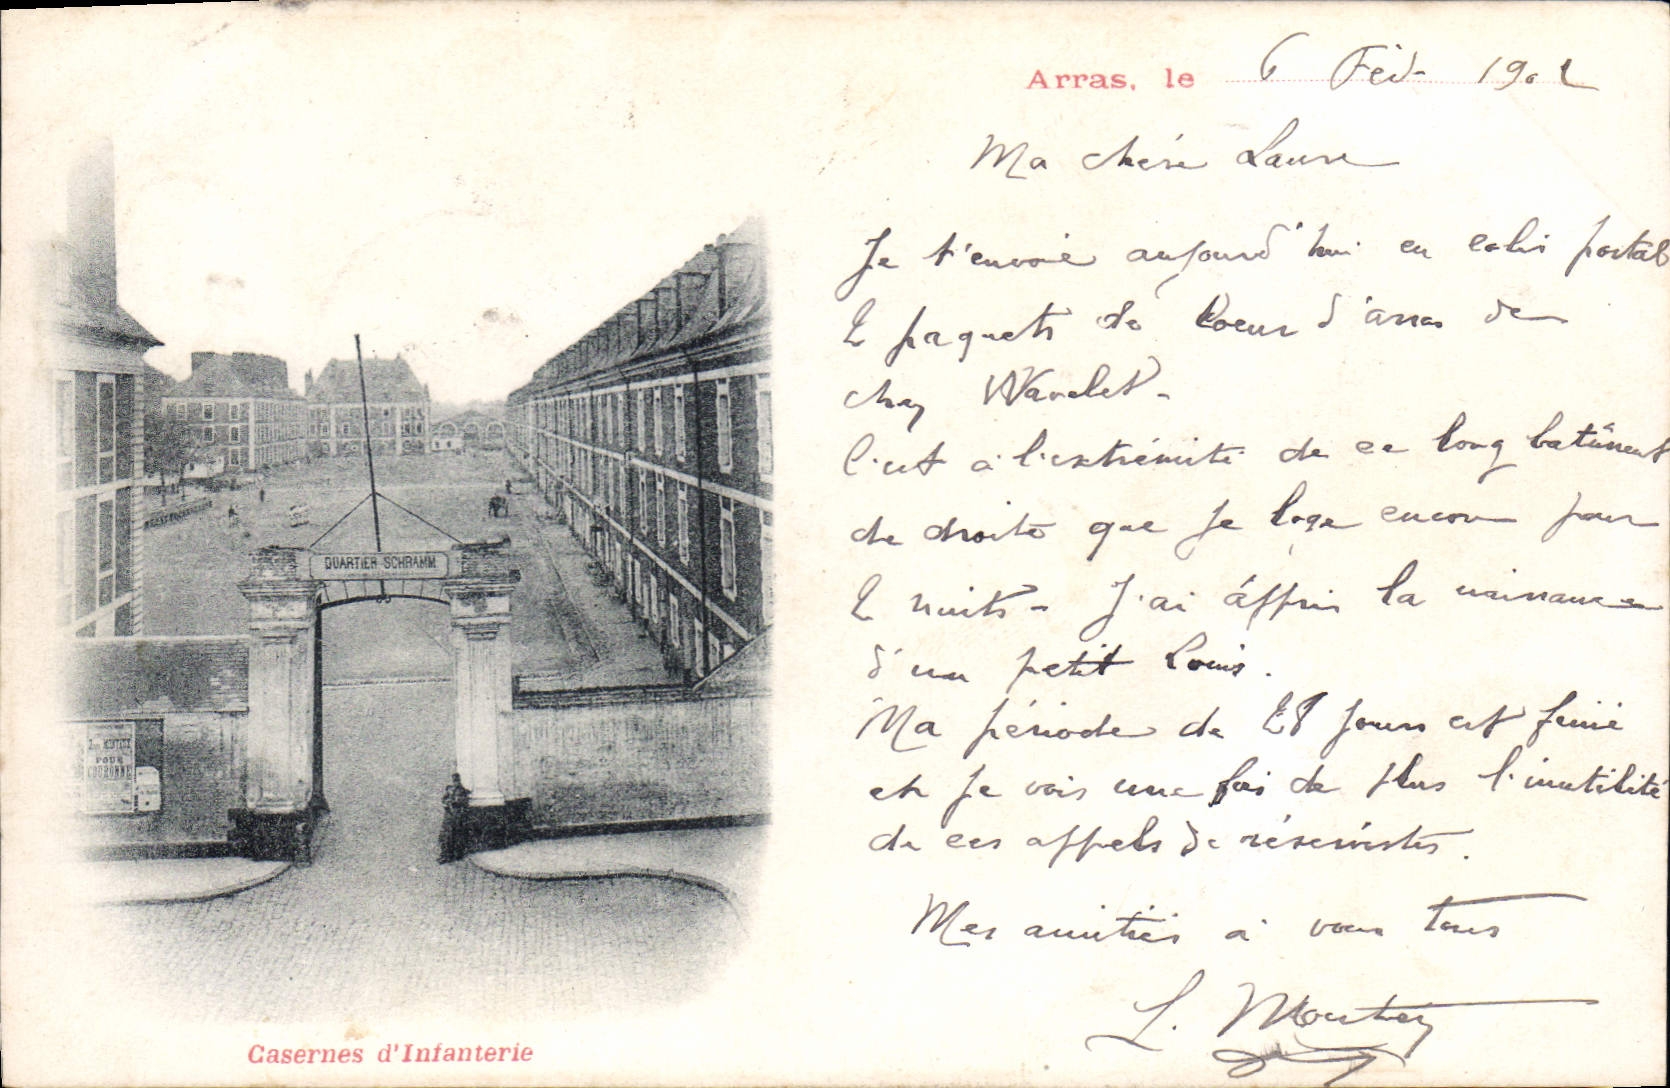 Arras, le 6 Fév. 1902
Ma chère Laure
Je t'envoie aujourd'hui en colis postal
2 paquets de Coeur d'arras de
chez Wavelet -
C'est à l'extrémité de ce long bâtiment
de droite que je loge encore pour
2 nuits - J'ai appris la naissance
d'un petit Louis.
Ma période de 28 jours est finie
et je vois une fois de plus l'inutilité
de ces appels de réservistes.
Mes amitiés à vous tous
L.
QUARTIER SCHRAMM
POUR
COURONNE
Casernes d'Infanterie